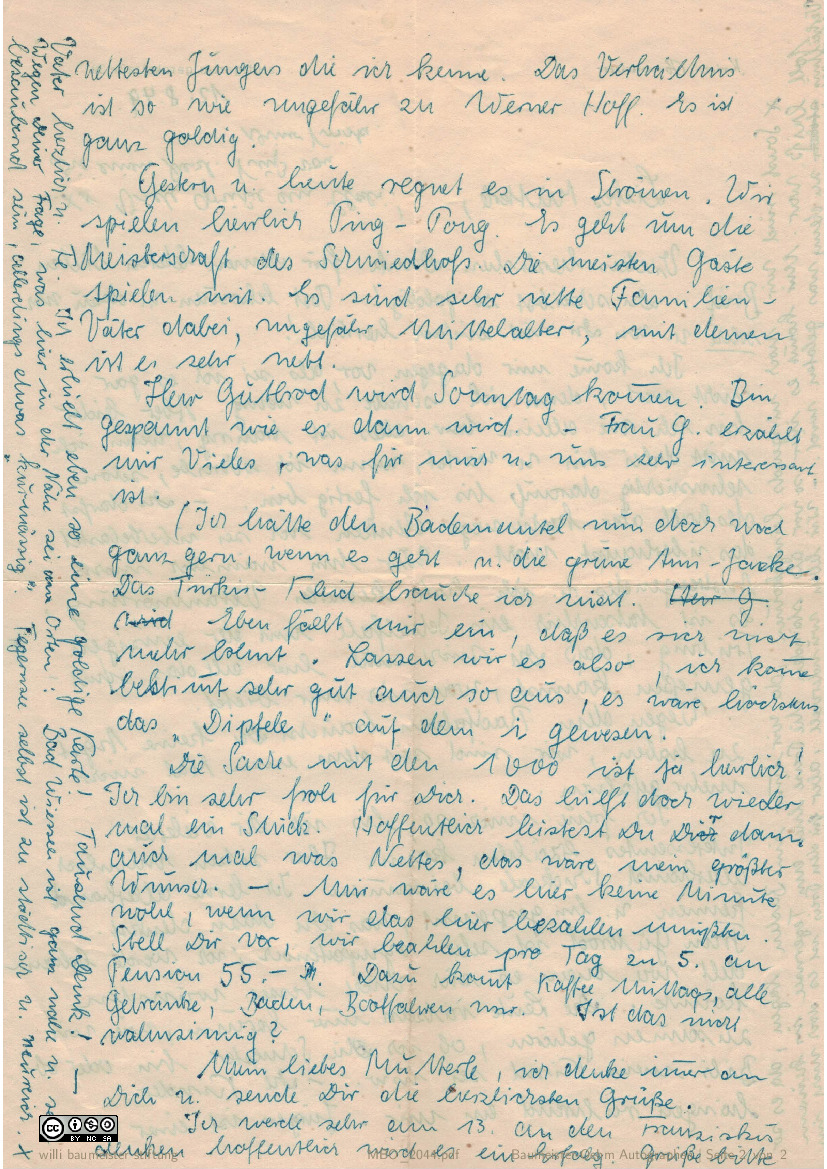 nettesten Jungens die ich kenne. Das Verhältnis
ist so wie ungefähr zu Werner Hoff. Es ist
ganz goldig.
Gestern u. heute regnet es in Strömen. Wir
spielen herrlich Ping-Pong. Es geht um die
Meisterschaft des Schmiedhofs. Die meisten Gäste
spielen mit. Es sind sehr nette Familien-
Väter dabei, ungefähr Mittelalter, mit denen
ist es sehr nett.
Herr Gutbrod wird Sonntag kom̄en. Bin
gespannt wie es dann wird. - Frau G. erzählt
mir Vieles, was für mich u. uns sehr interessant
ist.
(Ich hätte den Bademantel nun doch noch
ganz gern, wenn es geht u. die grüne Jacke.
Das Türkis-Kleid brauche ich nicht. Herr G.
wird Eben fällt mir ein, daß es sich nicht
mehr lohnt. Lassen wir es also, ich kom̄e
bestim̄t sehr gut auch so aus, es wäre höchstens
das "Dipfele" auf dem i gewesen.
Die Sache mit den 1000 ist ja herrlich!
Ich bin sehr froh für Dich. Das hilft doch wieder
mal ein Stück. Hoffentlich leistest Du Dir dann
auch mal was Nettes, das wäre mein größter
Wunsch. - Mir wäre es hier keine Minute
wohl, wenn wir das hier bezahlen müßten.
Stell Dir vor, wir bezahlen pro Tag zu 5. an
Pension 55.- M. Dazu kom̄t Kaffee Mittags, alle
Getränke, Baden, Bootfahren usw. Ist das nicht
wahnsinnig?
Mein liebes Mutterle, ich denke im̄er an
Dich u. sende Dir die herzlichsten Grüße.
Ich werde sehr am 13. an den Franziskus
denken hoffentlich wird es ein Erfolg. Grüße bitte
Vater herzlich u. Fe. Ich erhielt eben so eine goldige Karte! Tausend Dank! -
Wegen Deiner Frage, was hier in der Nähe sei an Orten: Bad Wiessee ist ganz nahe u. soll
bezaubernd sein, allerdings etwas "kurmässig". Tegernsee selbst ist zu städtisch u. neureich x
willi baumeister stiftung
Seite 2 von 2
BY NC SA